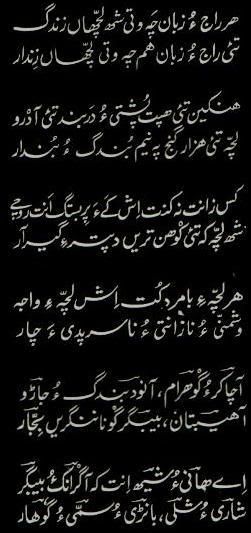 هر راج ءُ زبان چه وتی شهـ لچّهاں زندگ
تئی راج ءُ زبان هم چه وتی لچّهاں زِندار
هنکین تئی هپت پُشتی ءُ در بند تئی آدرو
لچّه تئی هزار گنج په نیم بُندگ ءُ بُندار
کس زانت نه کنت اِش کے ءَ پر بستگ اَنت روچے
شهـ لچّه که تئی کوهن تریں دپتر ءِ گیدار
هر لچّه ءِ بامرد کُت اِش لچّه ءِ واجه
دشمنّی ءُ نازانتی ءُ ناسرپدی ءَ چار
آچاکر ءُ گوهرام، آنود بندگ ءُ جاڑو
اهیبتان، بیبگر گوناننگریں بِجّار
اے هانی ءُ شیهـ اِنت که اگرانک ءُ بیبگر
شاری ءُ شلّی، بانڑی ءُ سمّی ءُ گوهار